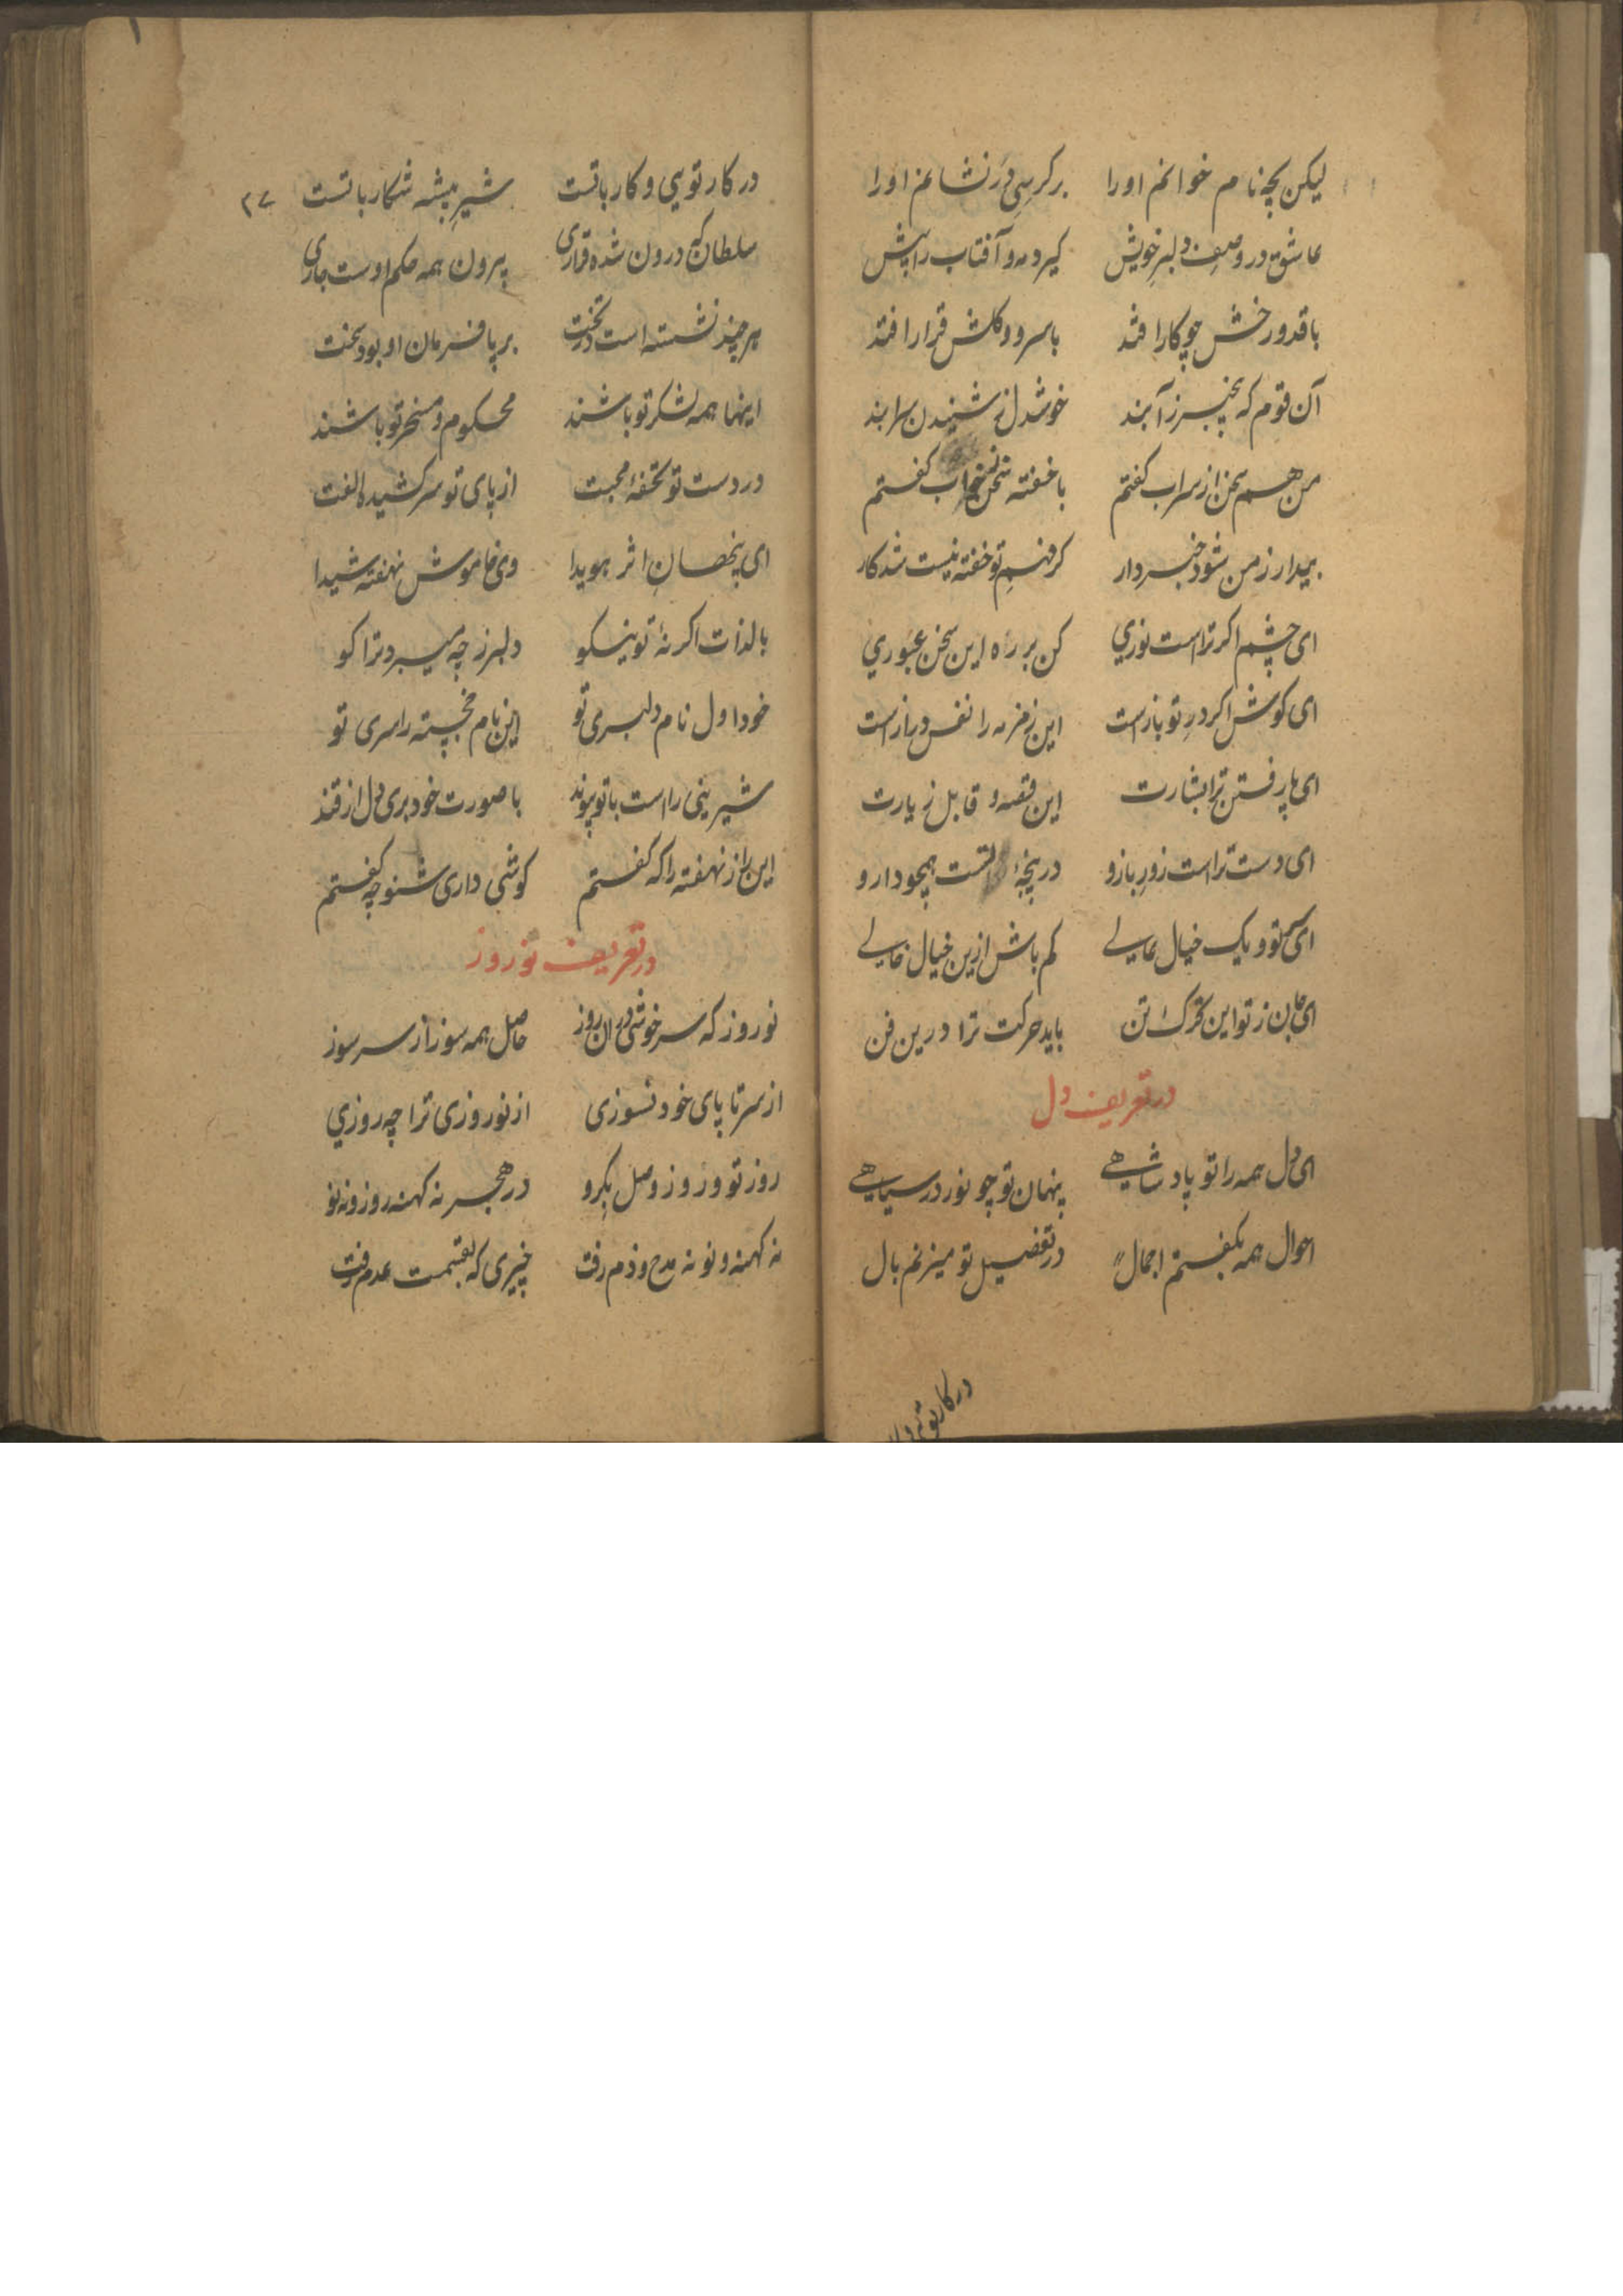 لیکن بچه نام خوانم اورا برکرسی در نشانم اورا
عاشق در وصف دلبر خویش گیرد مه و آفتاب را پیش
با قد و رخش چو کار افتد با سرو و گلش قرار افتد
آن قوم که بیخبر ز آبند خوشدل ز شنیدن سرابند
من هم سخن از سراب گفتم با خفته سخن ز خواب گفتم
بیدار ز من شود خبردار گر فهم تو خفته نیست شد کار
ای چشم اگر تراست نوری کن بر ره این سخن عبوری
ای گوش اگر در تو بازست این زمزمه را نفس درازست
ای پا رفتن ترا بشارت این قصه و قابل زیارت
ای دست تراست زور بازو در پنجهٔ تست همچو دارو
ای سر تو و یک خیال عالی کم باش ازین خیال خالی
ای جان ز تو این تحرک تن باید حرکت ترا درین فن
در تعریف دل
ای دل همه را تو پادشاهی پنهان تو چو نور در سیاهی
احوال همه بگفتم اجمال در تفصیل تو میزنم بال
در کار تو
در کار تویی و کار باتست شیر بیشه شکار باتست
۲۷
سلطان که درون شده قراری بیرون همه حکم اوست جاری
هرچند نشسته است در تخت برپا فرمان او بود سخت
اینها همه لشکر تو باشند محکوم و مسخر تو باشند
در دست تو تحفهٔ محبت از پای تو سر کشیده الفت
ای پنهان اثر هویدا وی خاموش نهفته شیدا
بالذات اگر نهٔ تو نیکو دلبر ز چه میبرد ترا کو
خود اول نام دلبری تو این نام خجسته را سری تو
شیرینی راست با تو پیوند با صورت خود بری دل از قند
این راز نهفته را که گفتم گوشی داری شنو چه گفتم
در تعریف نوروز
نوروز که سرخوشی در ان روز حاصل همه سوز از سر سوز
از سر تا پای خود نسوزی از نوروزی ترا چه روزی
روز تو و روز وصل بگرو در هجر نه کهنه روز و نه نو
نه کهنه و نو نه مدح و ذم رفت چیزی که بقسمت عدم رفت